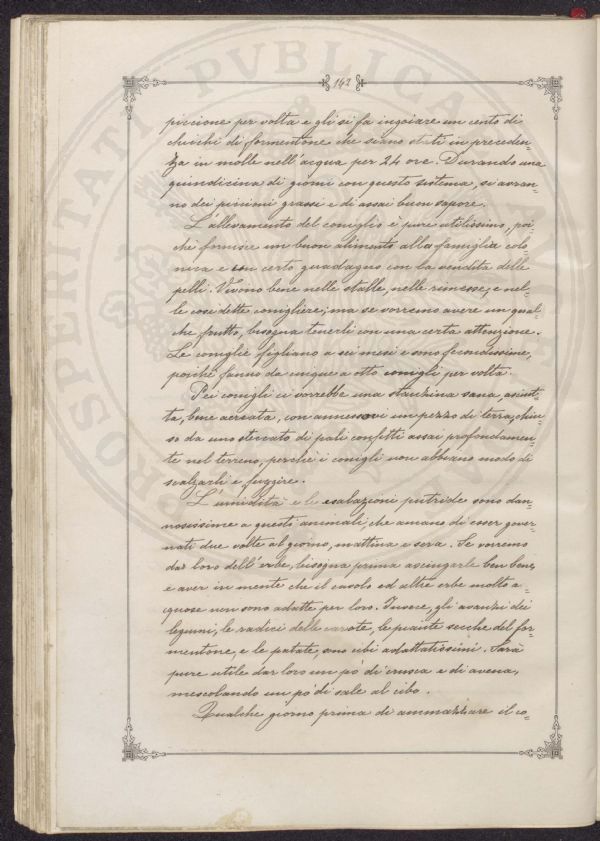 142
piccione per volta e gli si fa ingoiare un cento di
chicchi di formentone che siano stati in preceden-
za in molle nell'acqua per 24 ore. Durando una
quindicina di giorni con questo sistema, si avran-
no dei piccioni grassi e di assai buon sapore.
L'allevamento del coniglio è pure utilissimo, poi-
chè fornisce un buon alimento alla famiglia colo-
nica e un certo guadagno con la vendita delle
pelli. Vivono bene nelle stalle, nelle rimesse, e nel-
le così dette conigliere; ma se vorremo avere un qual-
che frutto, bisogna tenerli con una certa attenzione.
Le coniglie figliano a sei mesi e sono fecondissime,
poichè fanno da cinque a otto conigli per volta.
Pei conigli ci vorrebbe una stanzina sana, asciut-
ta, bene aereata, con annessovi un pezzo di terra, chiu-
so da uno steccato di pali confitti assai profondamen-
te nel terreno, perchè i conigli non abbiano modo di
scalzarli e fuggire.
L'umidità e le esalazioni putride sono dan-
nosissime a questi animali, che amano di esser gover-
nati due volte al giorno, mattina e sera. Se vorremo
dar loro dell'erbe, bisogna prima asciugarle ben bene,
e aver in mente che il cavolo ed altre erbe molto a-
quose non sono adatte per loro. Invece, gli avanzi dei
legumi, le radici delle carote, le piante secche del for-
mentone, e le patate, sono cibi adattatissimi. Sarà
pure utile dar loro un pò di crusca e di avena,
mescolando un pò di sale al cibo.
Qualche giorno prima di ammazzare il co-
PROSPERITATI PVBLICAE